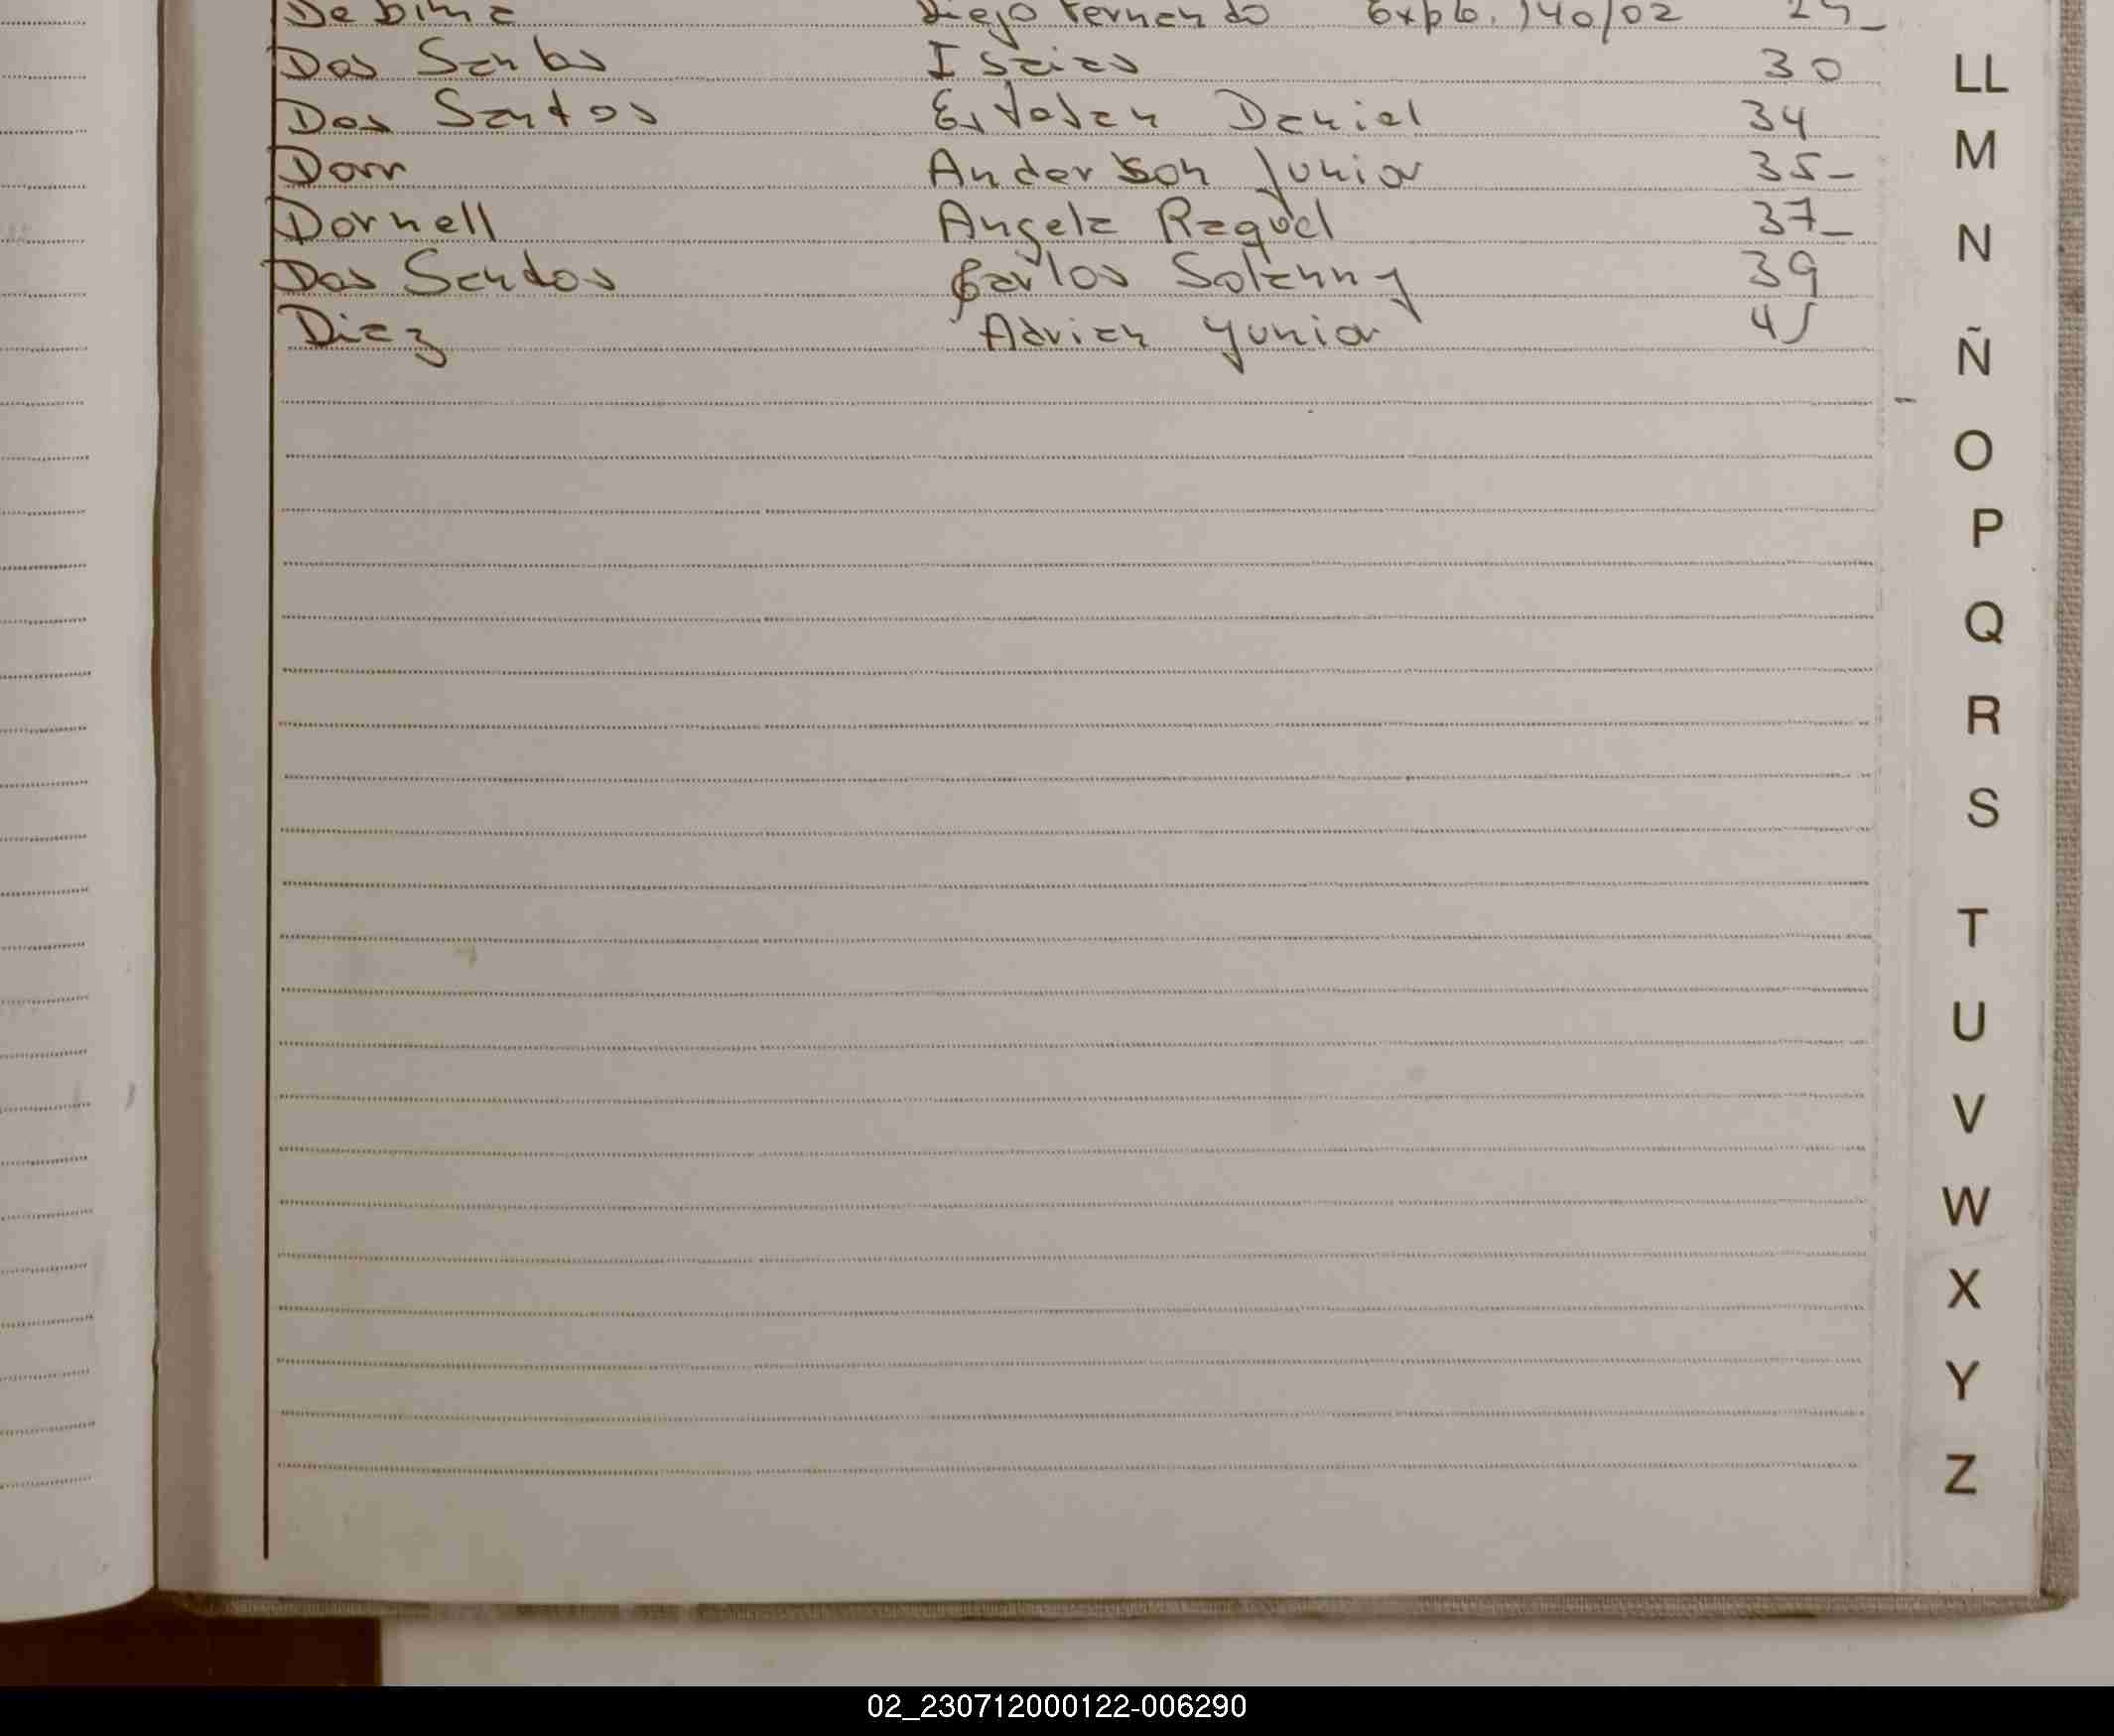 De Bima Diego Fernando Expte. 140/02
Dos Santos Isaias 30
Dos Santos Esteban Daniel 34
Dorr Anderson Junior 35_
Dornell Angela Raquel 37_
Dos Santos Carlos Solanny 39
Diaz Adrian Yunior 45
LL
M
N
Ñ
O
P
Q
R
S
T
U
V
W
X
Y
Z
02_230712000122-006290